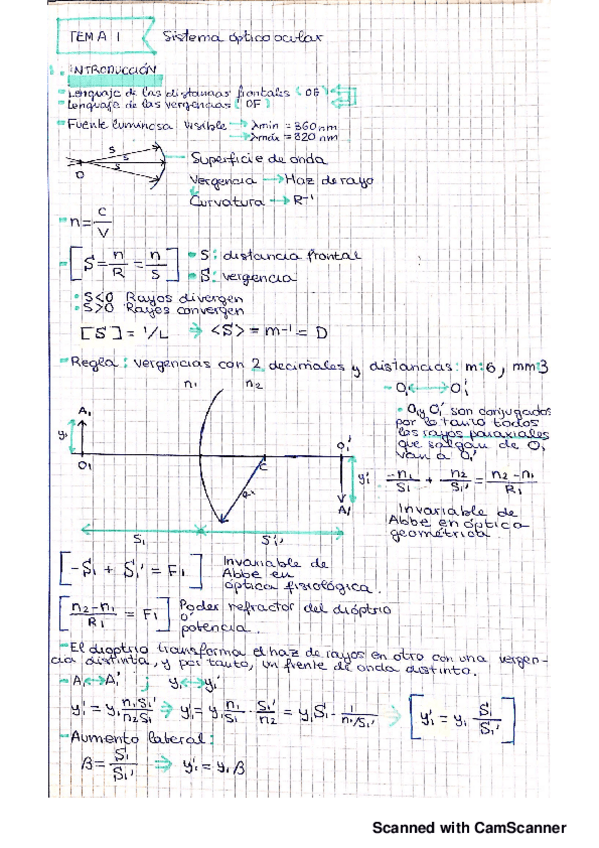 TEMA 1
Sistema óptico ocular
1. INTRODUCCIÓN
- Lenguaje de las distancias frontales (OG)
- Lenguaje de las vergencias (OF)
- Fuente luminosa visible → λmin = 360 nm
→ λmáx = 820 nm
S S S
O
Superficie de onda
Vergencia → Haz de rayo
Curvatura → R⁻¹
- n = C/V
- [S = n/R = n/s] - s: distancia frontal
- S: vergencia
· S<0 Rayos divergen
· S>0 Rayos convergen
[S] = 1/L → <S> = m⁻¹ = D
- Regla: vergencias con 2 decimales y distancias: m:6, mm:3
n₁ n₂
- O₁ ↔ O₁'
A₁
y₁
O₁
C
R₁
O₁'
y₁'
A₁'
S₁ S₁'
- O₁ y O₁' son conjugados
por lo tanto todos
los rayos paraxiales
que salgan de O₁
van a O₁'
-n₁/S₁ + n₂/S₁' = n₂-n₁/R₁
Invariable de
Abbe en óptica
geométrica.
[-S₁ + S₁' = F₁] Invariable de
Abbe en
óptica fisiológica.
[n₂-n₁/R₁ = F₁] Poder refractor del dioptrio
o'
potencia.
- El dioptrio transforma el haz de rayos en otro con una vergen-
cia distinta, y por tanto, un frente de onda distinto.
- A₁ ↔ A₁' ; y₁ ↔ y₁'
y₁' = y₁ n₁S₁'/n₂S₁ → y₁' = y₁ n₁/S₁ · S₁'/n₂ = y₁ S₁ · 1/n₁/S₁' → [y₁' = y₁ S₁/S₁']
- Aumento lateral:
β = S₁/S₁' → y₁' = y₁ β
Scanned with CamScanner